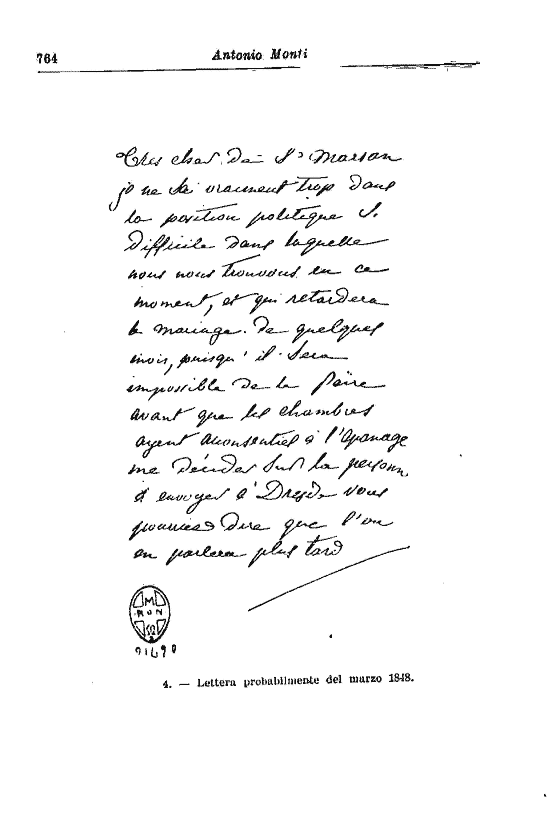 764
Antonio Monti
Très cher De S. Marsan
je ne sai vraiment trop dans
la position politique si
difficile dans laquelle
nous nous trouvons en ce
moment, et qui retardera
le mariage de quelques
mois, puisqu'il sera
impossible de le faire
avant que les chambres
ayent
à l'apanage
me décider sur la personn.
à envoyer à Dresde vous
dire que l'on
en parlera plus tard
M
RON
91690
4. — Lettera probabilmente del marzo 1848.